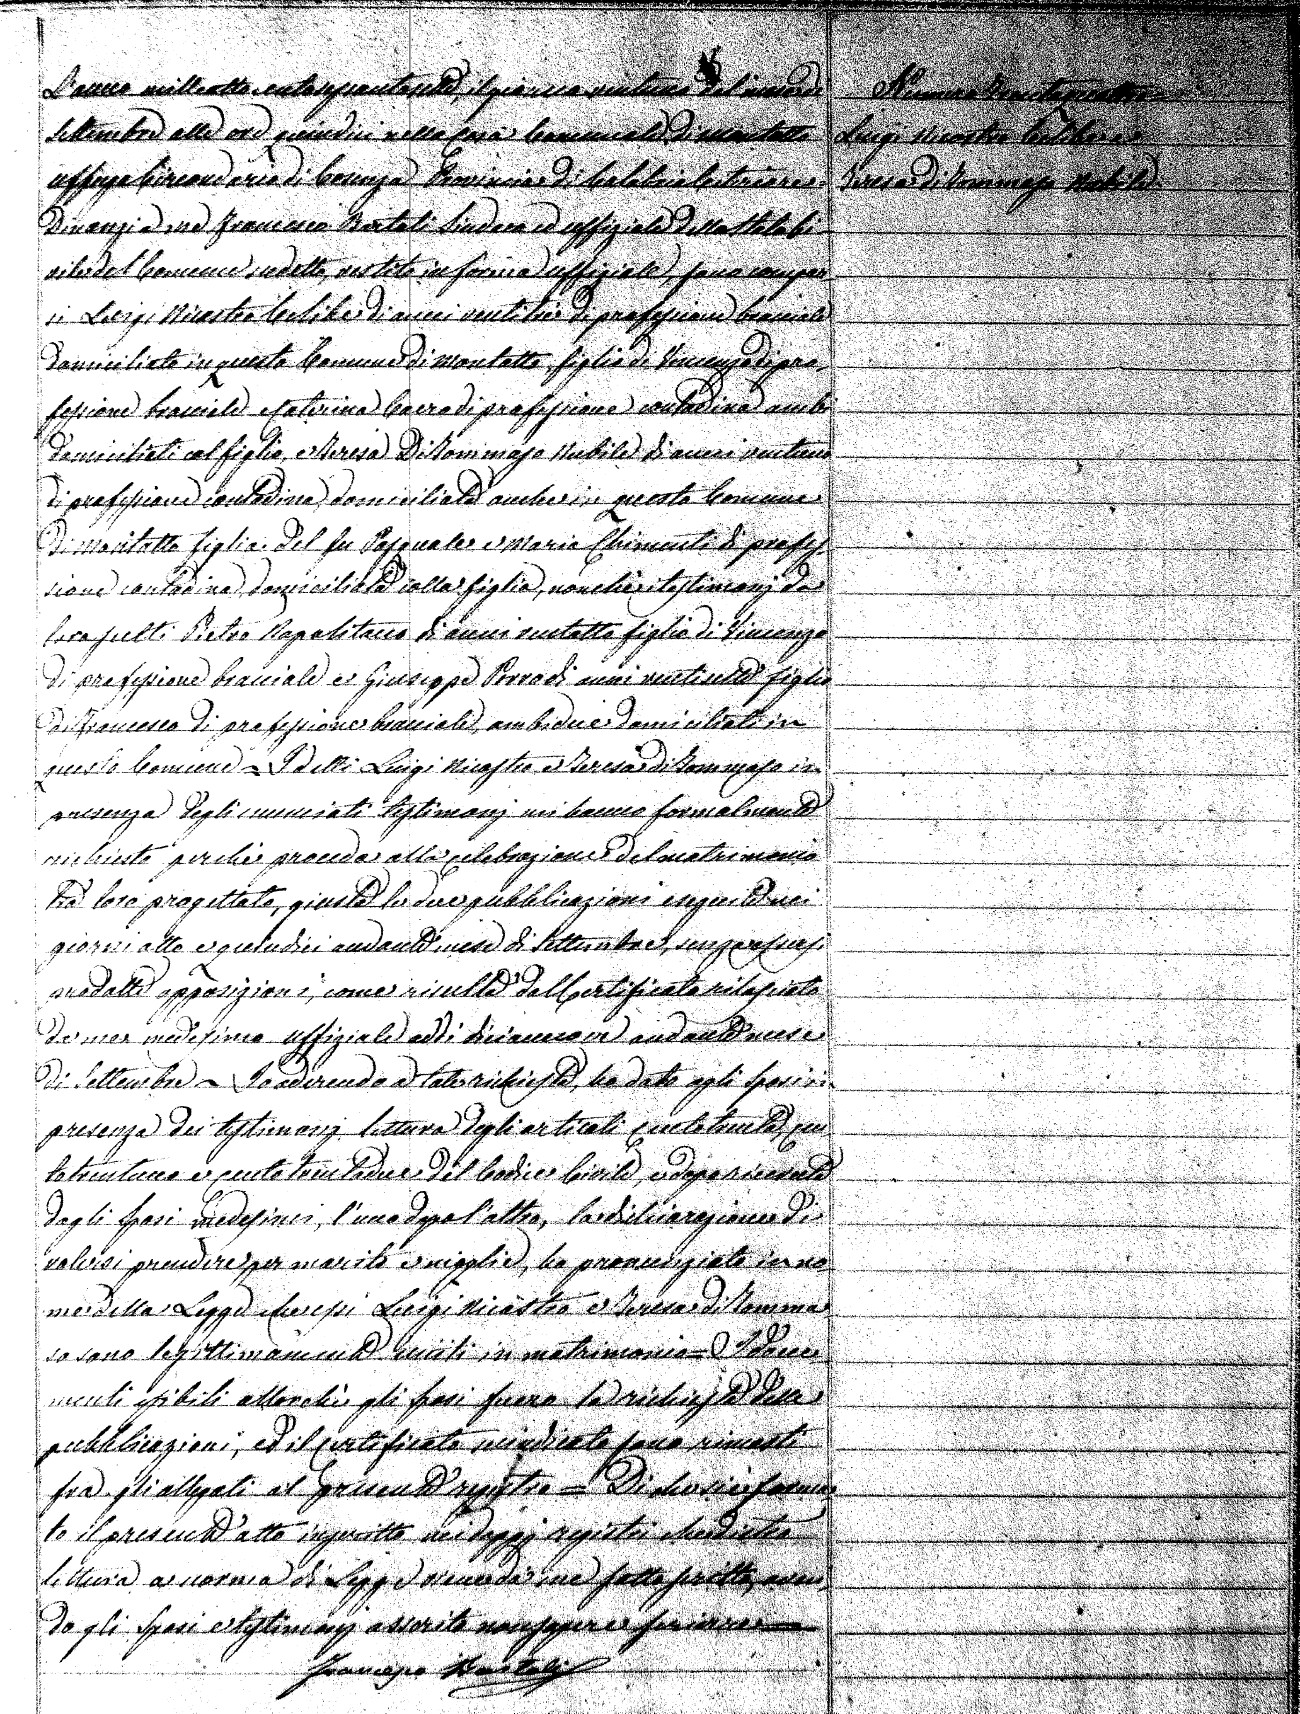 L'anno milleottocentosessantasette, il giorno ventuno del mese di
Settembre alle ore quindici nella Casa Comunale di Montalto
uffugo Circondario di Cosenza Provincia di Calabria Citeriore.
Dinanzi a me Francesco Sindaco ed uffiziale dello Stato Ci-
vile del Comune sudetto, vestito in forma uffiziale, sono compar-
si Luigi Nicastro Celibe di anni ventitre di professione bracciale
domiciliato in questo Comune di Montalto, figlio di Vincenzo di pro-
fessione bracciale e Caterina di professione contadina ambi
domiciliati col figlio, e Teresa Di Tommaso Nubile di anni ventuno
di professione contadina domiciliata anche in questo Comune
di Montalto figlia del fu Pasquale e Maria Chimenti di profes-
sione contadina domiciliata colla figlia, nonchè i testimonj da
loro scelti Pietro Napolitano di anni ventotto figlio di Vincenzo
di professione bracciale e Giuseppe Porro di anni ventisette figlio
di Francesco di professione bracciale, ambedue domiciliati in
questo Comune = I detti Luigi Nicastro e Teresa di Tommaso in
presenza degli enunciati testimonj mi hanno formalmente
richiesto perchè proceda alla celebrazione del matrimonio
tra loro progettato, giusta le due pubblicazioni eseguite nei
giorni otto e quindici andante mese di Settembre, senza essersi
prodotte opposizioni, come risulta dal Certificato rilasciato
da me medesimo uffiziale addì diciannove andante mese
di Settembre = Io aderendo a tale richiesta, ho dato agli sposi in
presenza dei testimonj lettura degli articoli centotrenta, cen-
totrentuno e centotrentadue del Codice Civile, e dopo ricevuta
dagli sposi medesimi, l'uno dopo l'altro, la dichiarazione di
volersi prendere per marito e moglie, ho pronunziato in no-
me della Legge che essi Luigi Nicastro e Teresa di Tomma-
so sono legittimamente uniti in matrimonio = I docu-
menti esibiti allorchè gli sposi fecero la richiesta delle
pubblicazioni, ed il certificato sono rimasti
fra gli allegati al presente registro = Di che si è forma-
to il presente atto inscritto nei doppj registri che dietro
lettura a norma di Legge da me sottoscritto, aven-
do gli sposi e testimonj asserito non sapere scrivere
Francesco
Numero
Luigi Nicastro Celibe e
Teresa di Tommaso Nubile